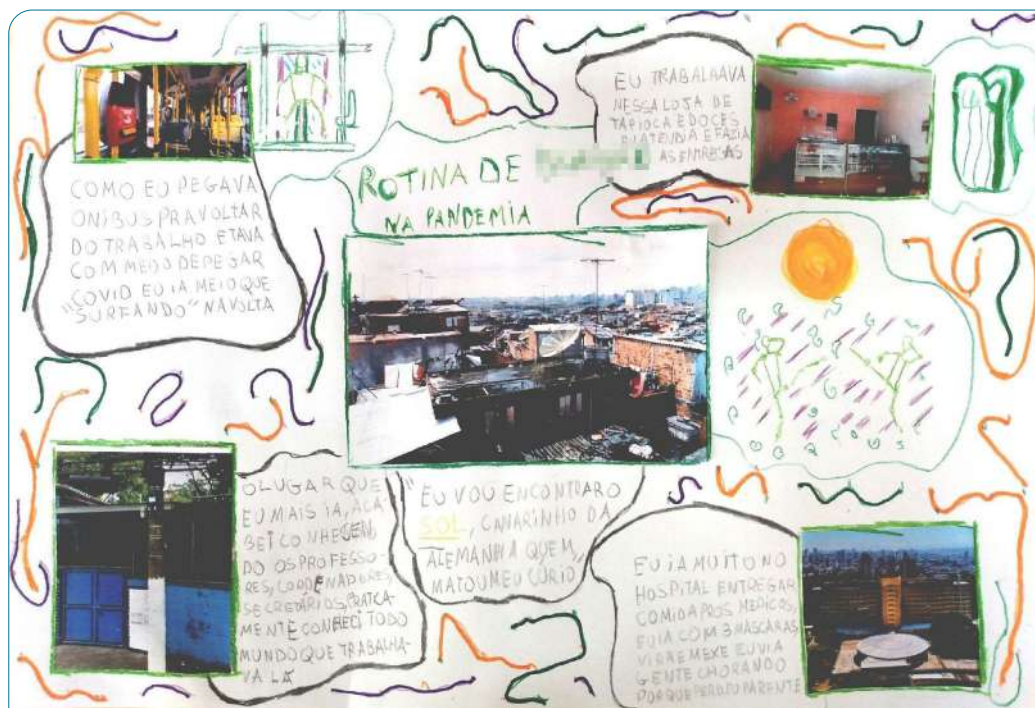 ROTINA DE
NA PANDEMIA
COMO EU PEGAVA
ONIBUS PRA VOLTAR
DO TRABALHO E TAVA
COM MEDO DE PEGAR
COVID EU IA MEIO QUE
"SURFANDO" NA VOLTA
EU TRABALHAVA
NESSA LOJA DE
TAPIOCA E DOCES
E FAZIA
AS ENTREGAS
O LUGAR QUE
EU MAIS IA, ACA-
BEI CONHECEN
DO OS PROFESSO-
RES, COODENADORES,
SECRETÁRIOS, PRATICA-
MENTE CONHECI TODO
MUNDO QUE TRABALHA-
VA LÁ
"EU VOU ENCONTRAR O
SOL, CANARINHO DA
ALEMANHA QUEM
MATOU MEU CÚRIÓ
EU IA MUITO NO
HOSPITAL ENTREGAR
COMIDA PROS MEDICOS,
EU IA COM 3 MÁSCARAS
VIRA E MEXE EU VIA
GENTE CHORANDO
PORQUE PERDEU PARENTE